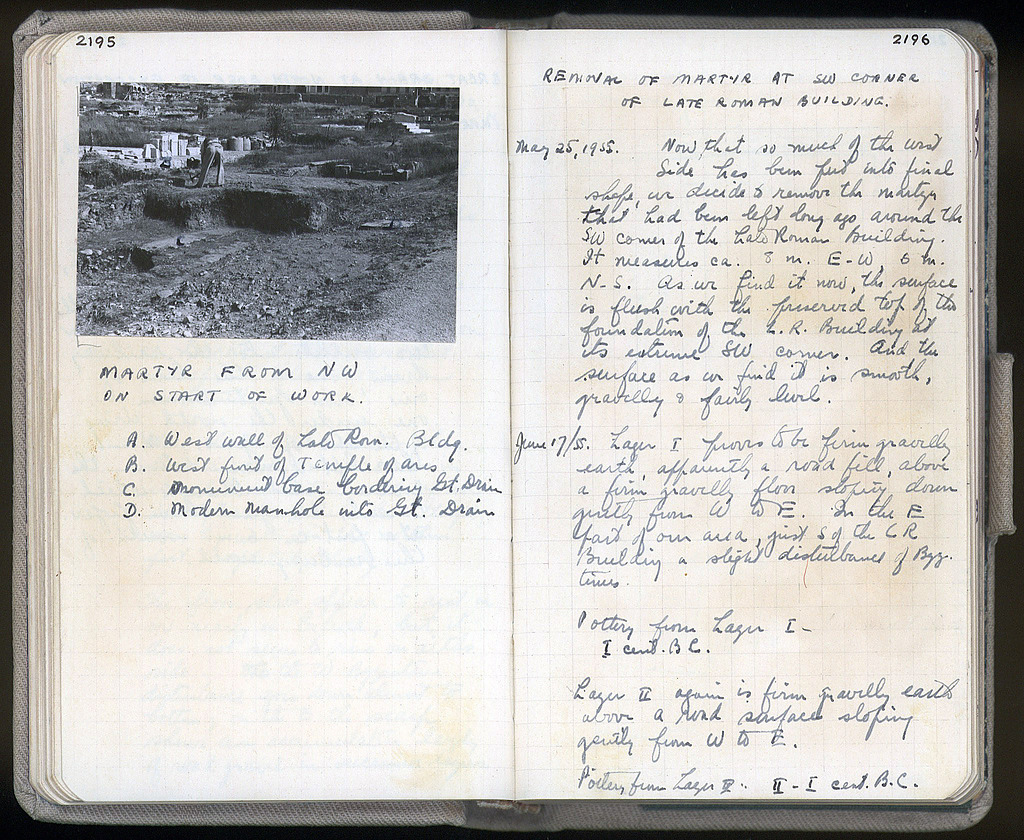 2195
MARTYR FROM NW
ON START OF WORK.
A. West wall of Late Rom. Bldg.
B. West front of Temple of Ares
C. Monument base bordering Gt. Drain
D. Modern manhole into Gt. Drain
2196
REMOVAL OF MARTYR AT SW CORNER
OF LATE ROMAN BUILDING.
May 25, 1955. Now, that so much of the west
side has been put into final
shape, we decide to remove the martyr
that had been left long ago around the
SW corner of the Late Roman Building.
It measures ca. 8 m. E-W, 6 m.
N-S. As we find it now, the surface
is flush with the preserved top of the
foundation of the L.R. Building at
its extreme SW corner. And the
surface as we find it is smooth,
gravelly & fairly level.
June 17/55. Lager I proves to be firm gravelly
earth, apparently a road fill, above
a firm gravelly floor sloping down
gently from W to E. In the E
part of our area, just S of the LR
Building a slight disturbance of Byz.
times.
Pottery from Lager I -
I cent. B.C.
Lager II again is firm gravelly earth
above a road surface sloping
gently from W to E.
Pottery from Lager II. II - I cent. B.C.